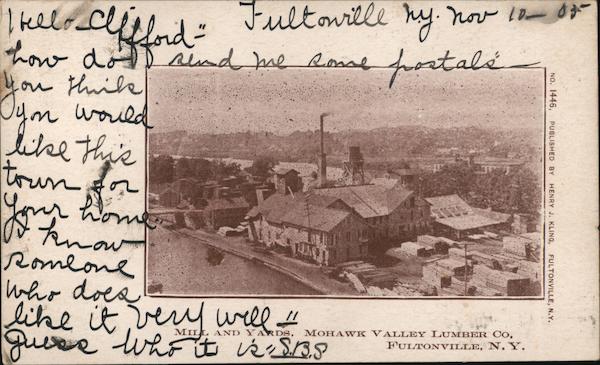 Hello Clifford" Fultonville Ny. Nov 10-05
how do send me some postals"
you think
you would
like this
town for
your home
I know
someone
who does
like it very well-"
Guess who it is= S.B.S
MILL AND YARDS. MOHAWK VALLEY LUMBER CO.
FULTONVILLE, N. Y.
NO. 1446. PUBLISHED BY HENRY J. KLING, FULTONVILLE, N.Y.